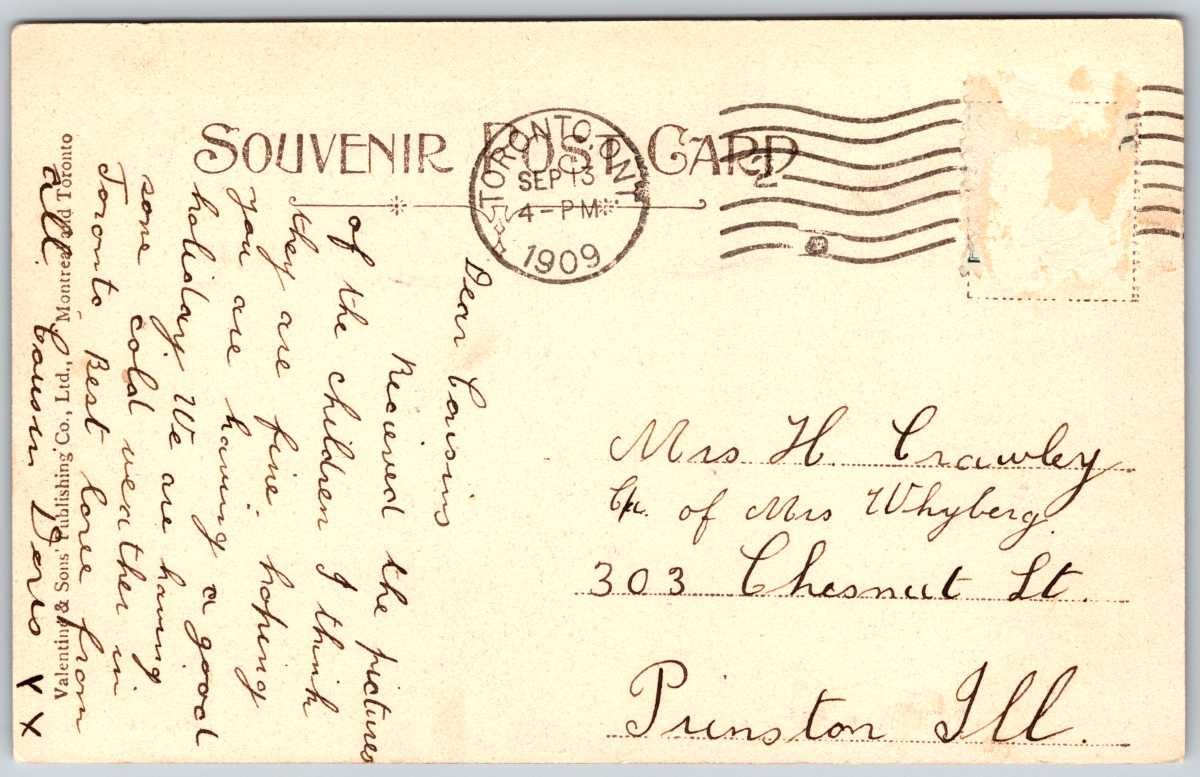 SOUVENIR POST CARD
TORONTO, ONT
SEP 13
4-PM
1909
2
Dear Cousins
Recieved the pictures
of the children I think
they are fine. hoping
you are having a good
holiday We are having
some cold weather in
Toronto Best love from
all. Cousin Doris
X X
Valentine & Sons' Publishing Co., Ltd., Montreal and Toronto
Mrs H Crawley
of Mrs Whyberg.
303 Chesnut St.
Prinston Ill.